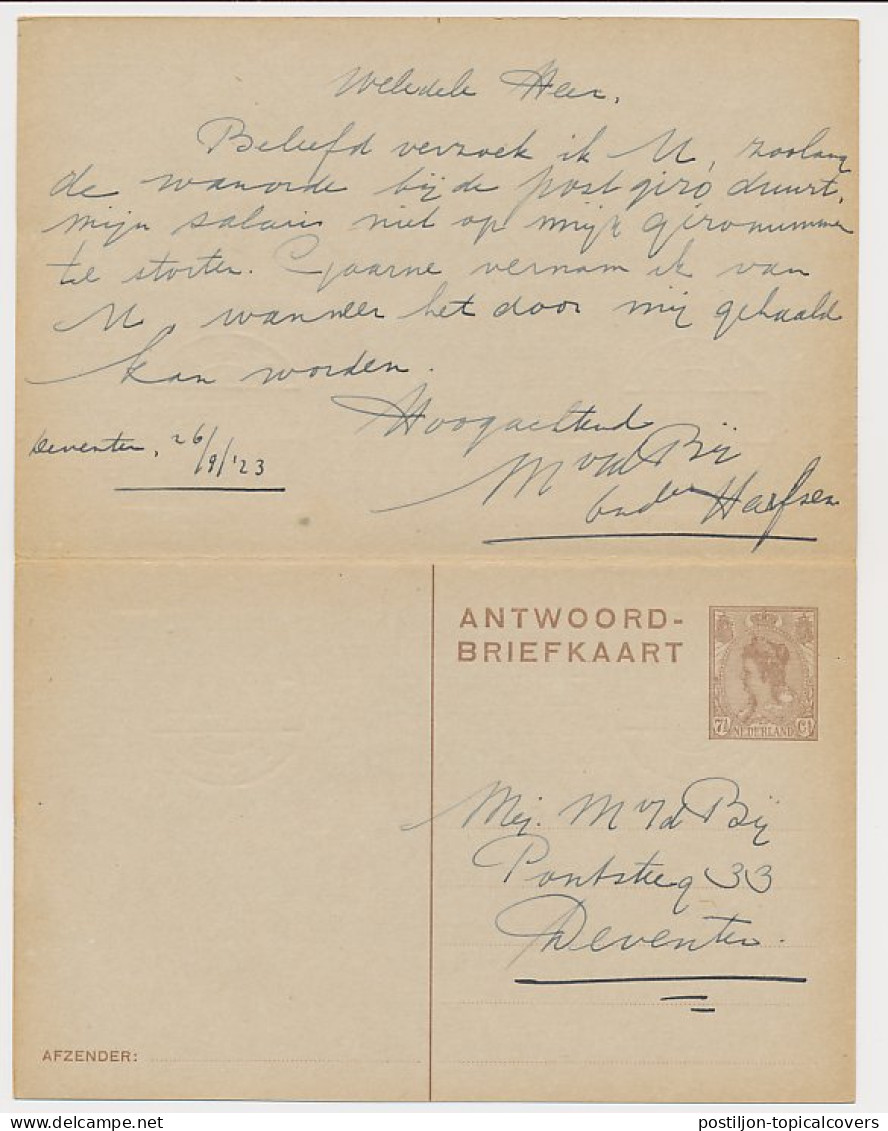 Weledele Heer,
Beleefd verzoek ik U, zoolang
de wanorde bij de postgiro duurt,
mijn salaris niet op mijn gironummer
te storten. Gaarne vernam ik van
U, wanneer het door mij gehaald
kan worden.
Hoogachtend
M v/d Bij
Deventer, 26/9/'23
Harfsen
ANTWOORD-
BRIEFKAART
7½ NEDERLAND Ct
Mej. M v/d Bij
Pontsteeg 33
Deventer.
AFZENDER:
postiljon-topicalcovers